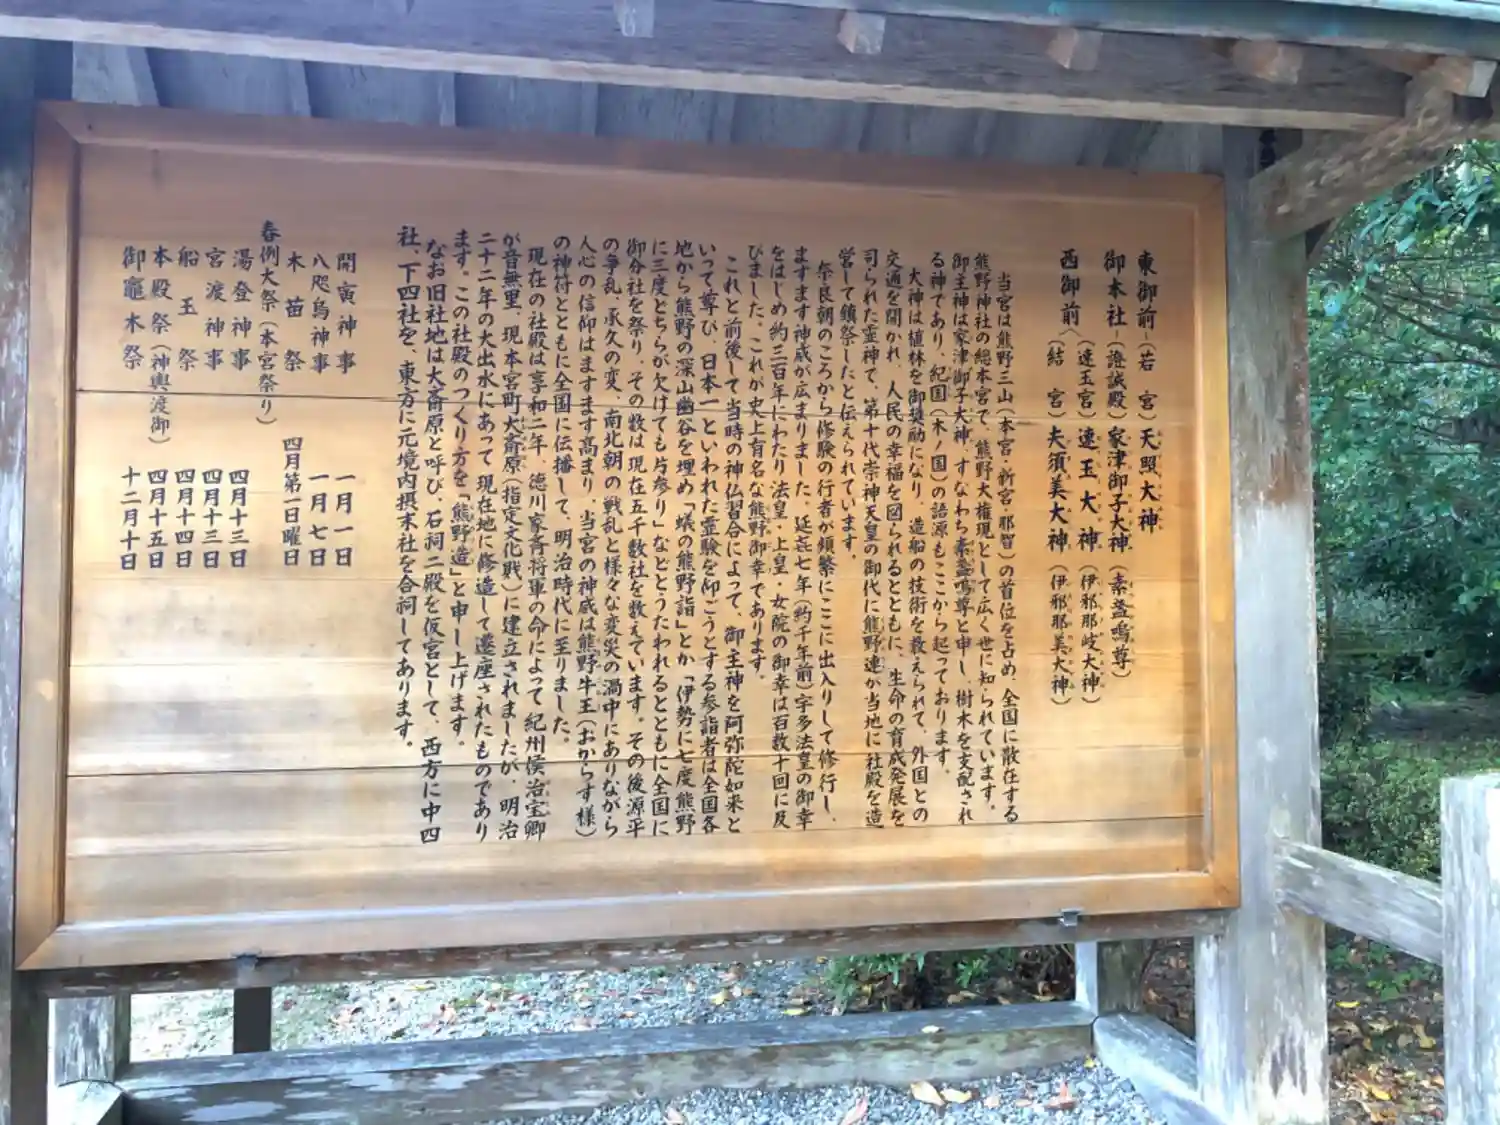 東御前－（若　宮）天照大神
御本社－（證誠殿）家津御子大神（素盞嗚尊）
西御前〈（速玉宮）速玉大神（伊邪那岐大神）
（結　宮）夫須美大神（伊邪那美大神）
当宮は熊野三山（本宮・新宮・那智）の首位を占め、全国に散在する
熊野神社の総本宮で、熊野大権現として広く世に知られています。
御主神は家津御子大神、すなわち素盞嗚尊と申し、樹木を支配され
る神であり、紀国（木ノ国）の語源もここから起っております。
大神は植林を御奨励になり、造船の技術を教えられて、外国との
交通を開かれ、人民の幸福を図られるとともに、生命の育成発展を
司られた霊神で、第十代崇神天皇の御代に熊野連が当地に社殿を造
営して鎮祭したと伝えられています。
奈良朝のころから修験の行者が頻繁にここに出入りして修行し、
ますます神威が広まりました。延喜七年（約千年前）宇多法皇の御幸
をはじめ約三百年にわたり法皇・上皇・女院の御幸は百数十回に及
びました。これが史上有名な熊野御幸であります。
これと前後して当時の神仏習合によって、御主神を阿弥陀如来と
いって尊び、日本一といわれた霊験を仰ごうとする参詣者は全国各
地から熊野の深山幽谷を埋め「蟻の熊野詣」とか「伊勢に七度熊野
に三度どちらが欠けても片参り」などとうたわれるとともに全国に
御分社を祭り、その数は現在五千数社を数えています。その後源平
の争乱、承久の変、南北朝の戦乱と様々な変災の渦中にありながら
人心の信仰はますます高まり、当宮の神威は熊野牛王（おからす様）
の神符とともに全国に伝播して、明治時代に至りました。
現在の社殿は享和二年、徳川家斉将軍の命によって紀州侯治宝卿
が音無里、現本宮町大斎原（指定文化財）に建立されましたが、明治
二十二年の大出水にあって現在地に修造して遷座されたものであり
ます。この社殿のつくり方を「熊野造」と申し上げます。
なお旧社地は大斎原と呼び、石祠二殿を仮宮として、西方に中四
社、下四社を、東方に元境内摂末社を合祀してあります。
開寅神事　一月一日
八咫烏神事　一月七日
木苗祭　四月第一日曜日
春例大祭（本宮祭り）
湯登神事　四月十三日
宮渡神事　四月十三日
船玉祭　四月十四日
本殿祭（神輿渡御）四月十五日
御竈木祭　十二月十日